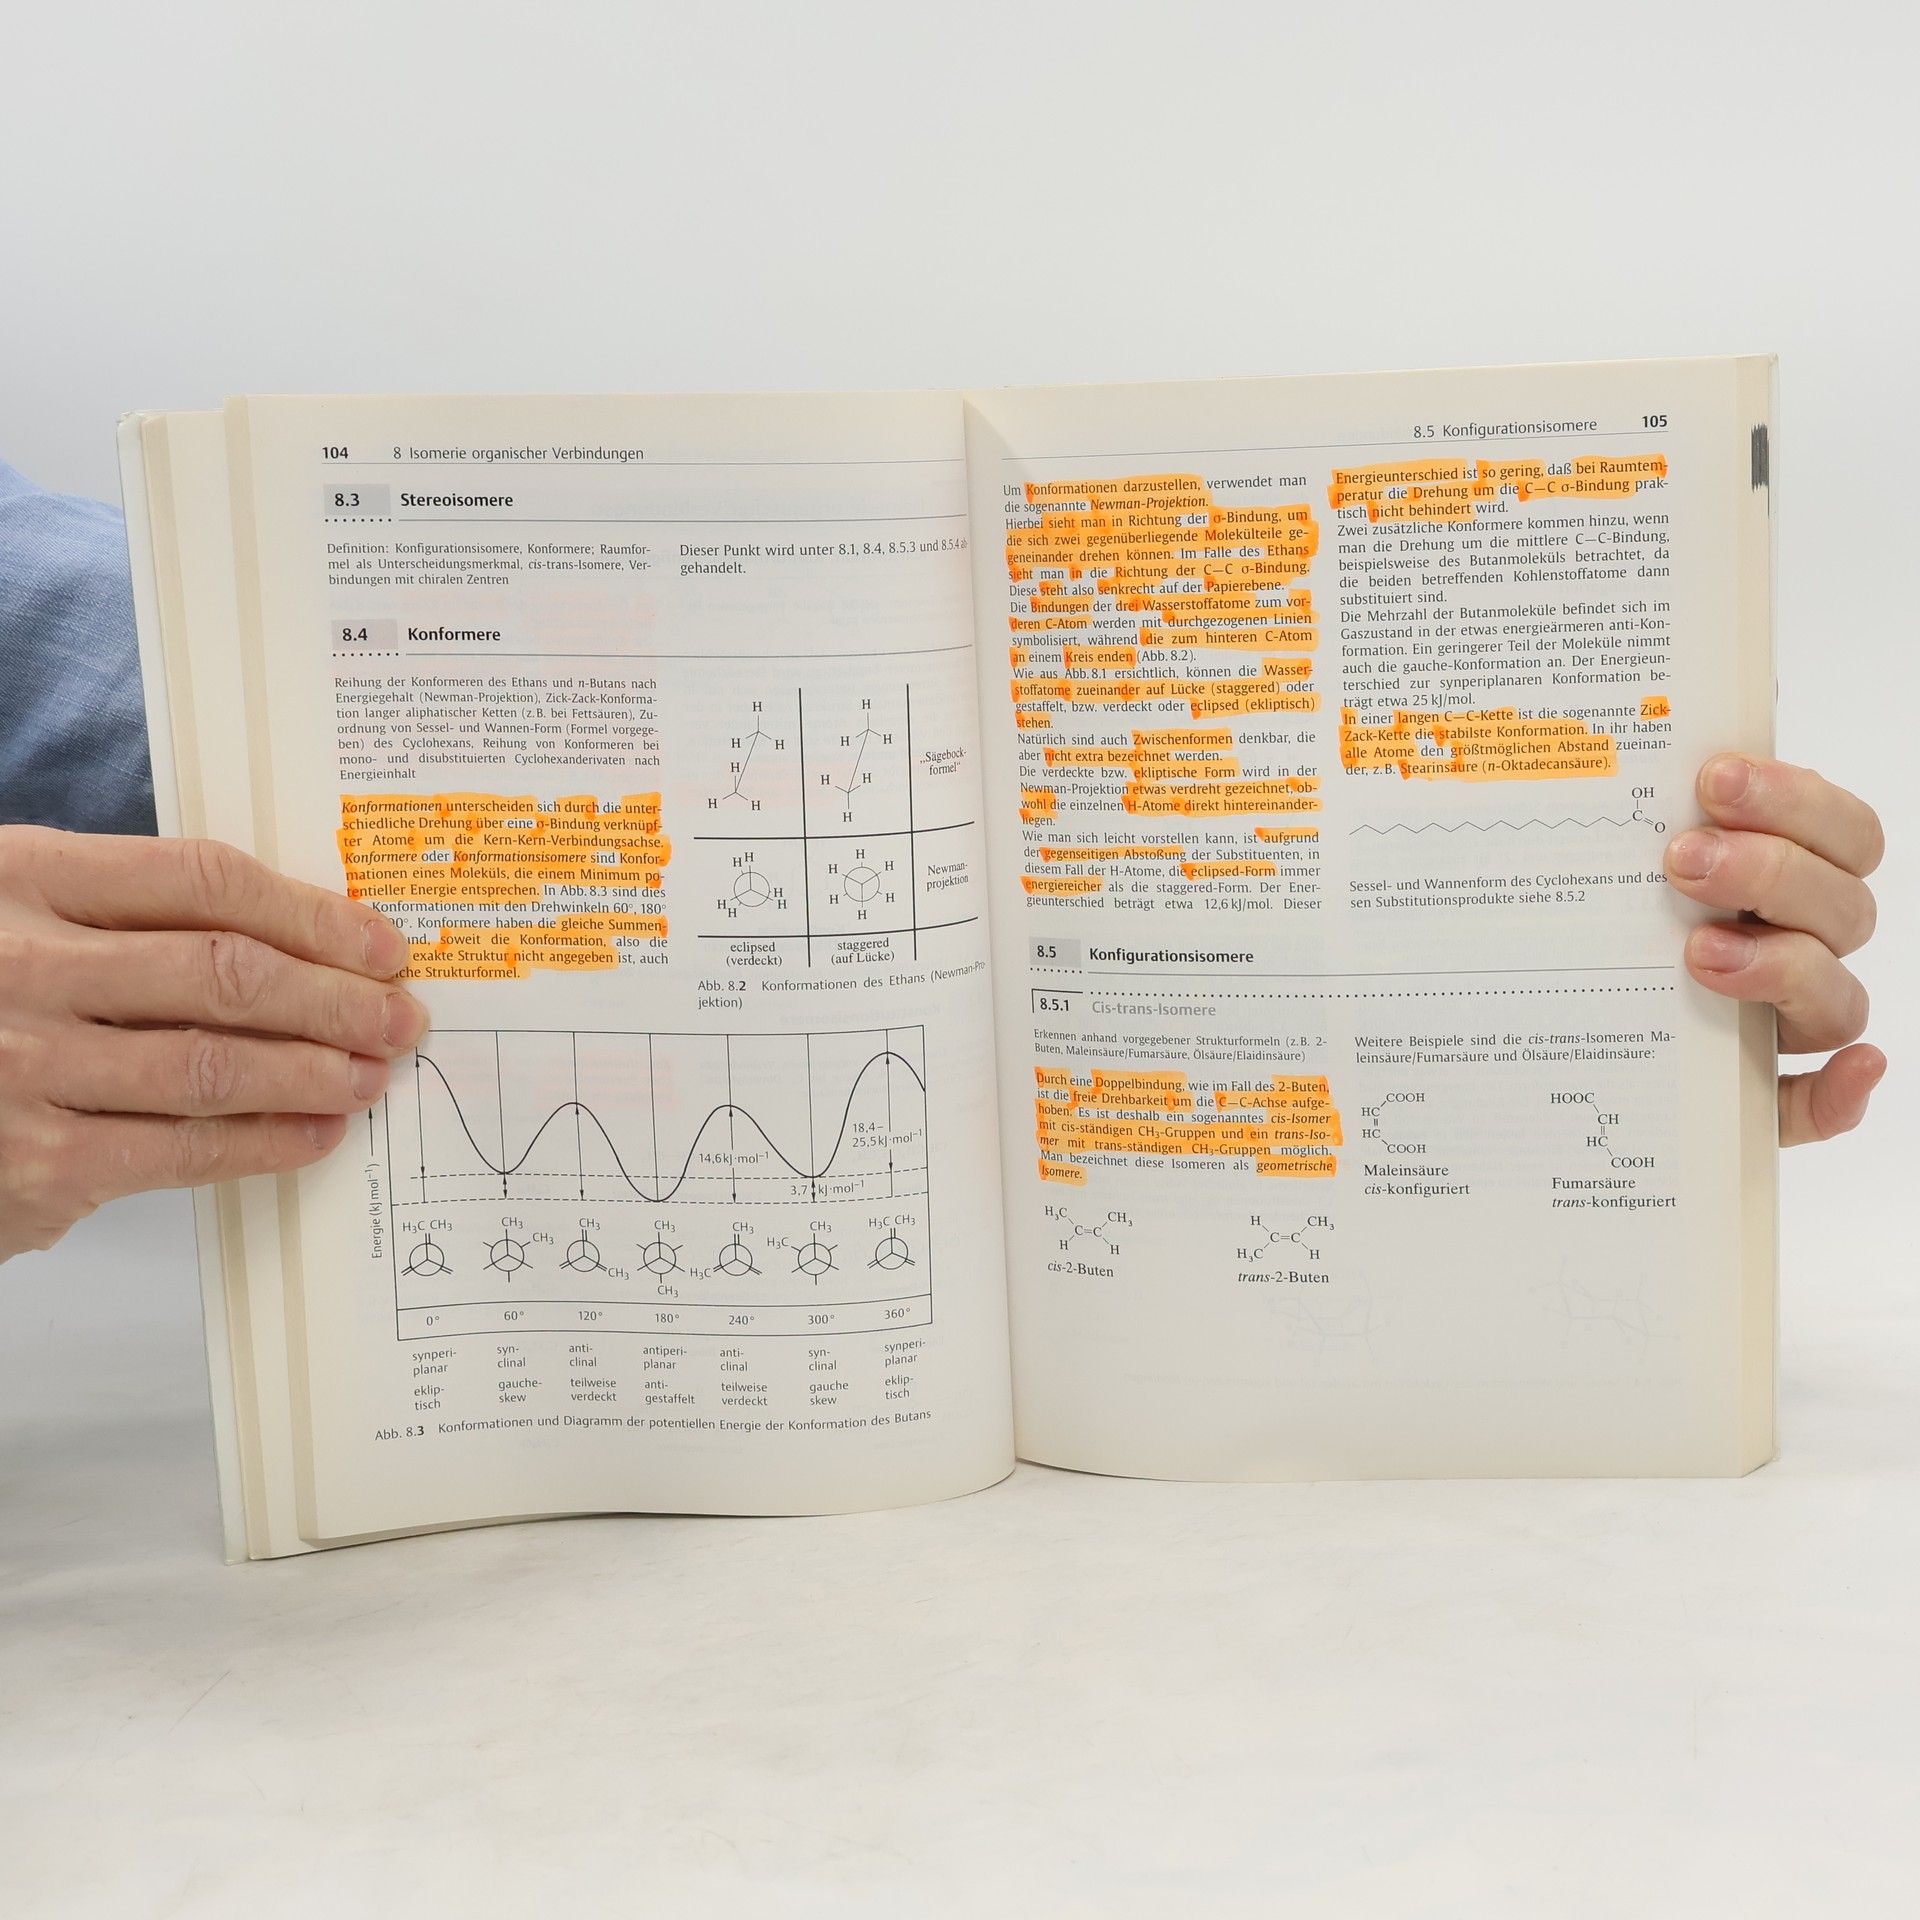 104 8 Isomerie organischer Verbindungen
8.3 Stereoisomere
Definition: Konfigurationsisomere, Konformere; Raumfor-
mel als Unterscheidungsmerkmal, cis-trans-Isomere, Ver-
bindungen mit chiralen Zentren
Dieser Punkt wird unter 8.1, 8.4, 8.5.3 und 8.5.4 ab-
gehandelt.
8.4 Konformere
Reihung der Konformeren des Ethans und n-Butans nach
Energiegehalt (Newman-Projektion), Zick-Zack-Konforma-
tion langer aliphatischer Ketten (z.B. bei Fettsäuren), Zu-
ordnung von Sessel- und Wannen-Form (Formel vorgege-
ben) des Cyclohexans, Reihung von Konformeren bei
mono- und disubstituierten Cyclohexanderivaten nach
Energieinhalt
Konformationen unterscheiden sich durch die unter-
schiedliche Drehung über eine σ-Bindung verknüpf-
ter Atome um die Kern-Kern-Verbindungsachse.
Konformere oder Konformationsisomere sind Konfor-
mationen eines Moleküls, die einem Minimum po-
tentieller Energie entsprechen. In Abb. 8.3 sind dies
Konformationen mit den Drehwinkeln 60°, 180°
Konformere haben die gleiche Summen-
und, soweit die Konformation, also die
exakte Struktur nicht angegeben ist, auch
Strukturformel.
H H
H H H H
H H H
H H H
„Sägebock-
formel"
H H H
H H H
H H H
H H H
Newman-
projektion
eclipsed
(verdeckt)
staggered
(auf Lücke)
Abb. 8.2 Konformationen des Ethans (Newman-Pro-
jektion)
Energie (kJ mol⁻¹)
14,6 kJ·mol⁻¹
3,7 kJ·mol⁻¹
18,4–
25,5 kJ·mol⁻¹
H₃C CH₃ CH₃ CH₃ CH₃ CH₃ CH₃ H₃C CH₃
CH₃ CH₃ CH₃ H₃C H₃C
0° 60° 120° 180° 240° 300° 360°
synperi- syn- anti- antiperi- anti- syn- synperi-
planar clinal clinal planar clinal clinal planar
eklip- gauche- teilweise anti- teilweise gauche eklip-
tisch skew verdeckt gestaffelt verdeckt skew tisch
Abb. 8.3 Konformationen und Diagramm der potentiellen Energie der Konformation des Butans
8.5 Konfigurationsisomere 105
Um Konformationen darzustellen, verwendet man
die sogenannte Newman-Projektion.
Hierbei sieht man in Richtung der σ-Bindung, um
die sich zwei gegenüberliegende Molekülteile ge-
geneinander drehen können. Im Falle des Ethans
sieht man in die Richtung der C—C σ-Bindung.
Diese steht also senkrecht auf der Papierebene.
Die Bindungen der drei Wasserstoffatome zum vor-
deren C-Atom werden mit durchgezogenen Linien
symbolisiert, während die zum hinteren C-Atom
an einem Kreis enden (Abb. 8.2).
Wie aus Abb. 8.1 ersichtlich, können die Wasser-
stoffatome zueinander auf Lücke (staggered) oder
gestaffelt, bzw. verdeckt oder eclipsed (ekliptisch)
stehen.
Natürlich sind auch Zwischenformen denkbar, die
aber nicht extra bezeichnet werden.
Die verdeckte bzw. ekliptische Form wird in der
Newman-Projektion etwas verdreht gezeichnet, ob-
wohl die einzelnen H-Atome direkt hintereinander-
liegen.
Wie man sich leicht vorstellen kann, ist aufgrund
der gegenseitigen Abstoßung der Substituenten, in
diesem Fall der H-Atome, die eclipsed-Form immer
energiereicher als die staggered-Form. Der Ener-
gieunterschied beträgt etwa 12,6 kJ/mol. Dieser
Energieunterschied ist so gering, daß bei Raumtem-
peratur die Drehung um die C—C σ-Bindung prak-
tisch nicht behindert wird.
Zwei zusätzliche Konformere kommen hinzu, wenn
man die Drehung um die mittlere C—C-Bindung,
beispielsweise des Butanmoleküls betrachtet, da
die beiden betreffenden Kohlenstoffatome dann
substituiert sind.
Die Mehrzahl der Butanmoleküle befindet sich im
Gaszustand in der etwas energieärmeren anti-Kon-
formation. Ein geringerer Teil der Moleküle nimmt
auch die gauche-Konformation an. Der Energieun-
terschied zur synperiplanaren Konformation be-
trägt etwa 25 kJ/mol.
In einer langen C—C-Kette ist die sogenannte Zick-
Zack-Kette die stabilste Konformation. In ihr haben
alle Atome den größtmöglichen Abstand zueinan-
der, z.B. Stearinsäure (n-Oktadecansäure).
OH
C
O
Sessel- und Wannenform des Cyclohexans und des
sen Substitutionsprodukte siehe 8.5.2
8.5 Konfigurationsisomere
8.5.1 Cis-trans-Isomere
Erkennen anhand vorgegebener Strukturformeln (z.B. 2-
Buten, Maleinsäure/Fumarsäure, Ölsäure/Elaidinsäure)
Durch eine Doppelbindung, wie im Fall des 2-Buten,
ist die freie Drehbarkeit um die C—C-Achse aufge-
hoben. Es ist deshalb ein sogenanntes cis-Isomer
mit cis-ständigen CH₃-Gruppen und ein trans-Iso-
mer mit trans-ständigen CH₃-Gruppen möglich.
Man bezeichnet diese Isomeren als geometrische
Isomere.
H₃C CH₃
C=C
H H
cis-2-Buten
H CH₃
C=C
H₃C H
trans-2-Buten
Weitere Beispiele sind die cis-trans-Isomeren Ma-
leinsäure/Fumarsäure und Ölsäure/Elaidinsäure:
COOH
HC
HC
COOH
Maleinsäure
cis-konfiguriert
HOOC
CH
HC
COOH
Fumarsäure
trans-konfiguriert